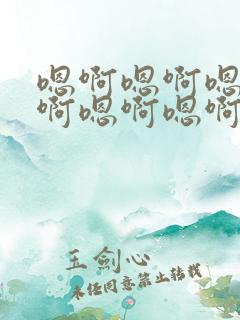 嗯啊嗯啊嗯
啊嗯啊嗯啊
王劍心
未经同意禁止转载